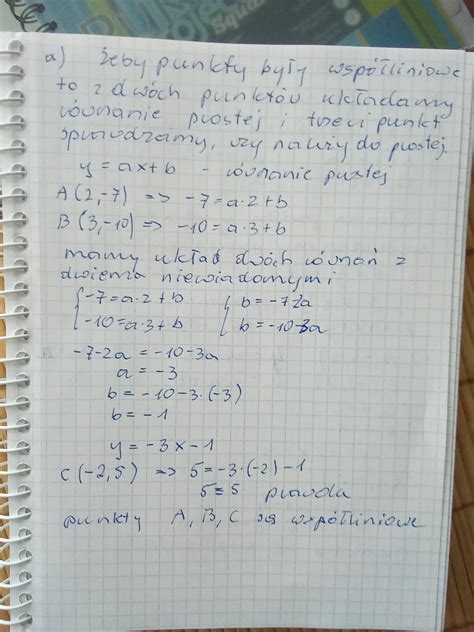 Squa
a) żeby punkty były współliniowe
to z dwóch punktów układamy
równanie prostej i trzeci punkt
sprawdzamy, czy należy do prostej.
y = ax + b - równanie prostej
A (2,-7) => -7 = a·2 + b
B (3,-10) => -10 = a·3 + b
mamy układ dwóch równań z
dwiema niewiadomymi
{ -7 = a·2 + b { b = -7-2a
{ -10 = a·3 + b { b = -10-3a
-7-2a = -10-3a
a = -3
b = -10-3·(-3)
b = -1
y = -3x-1
C (-2,5) => 5 = -3·(-2)-1
5 = 5 prawda
punkty A, B, C są współliniowe